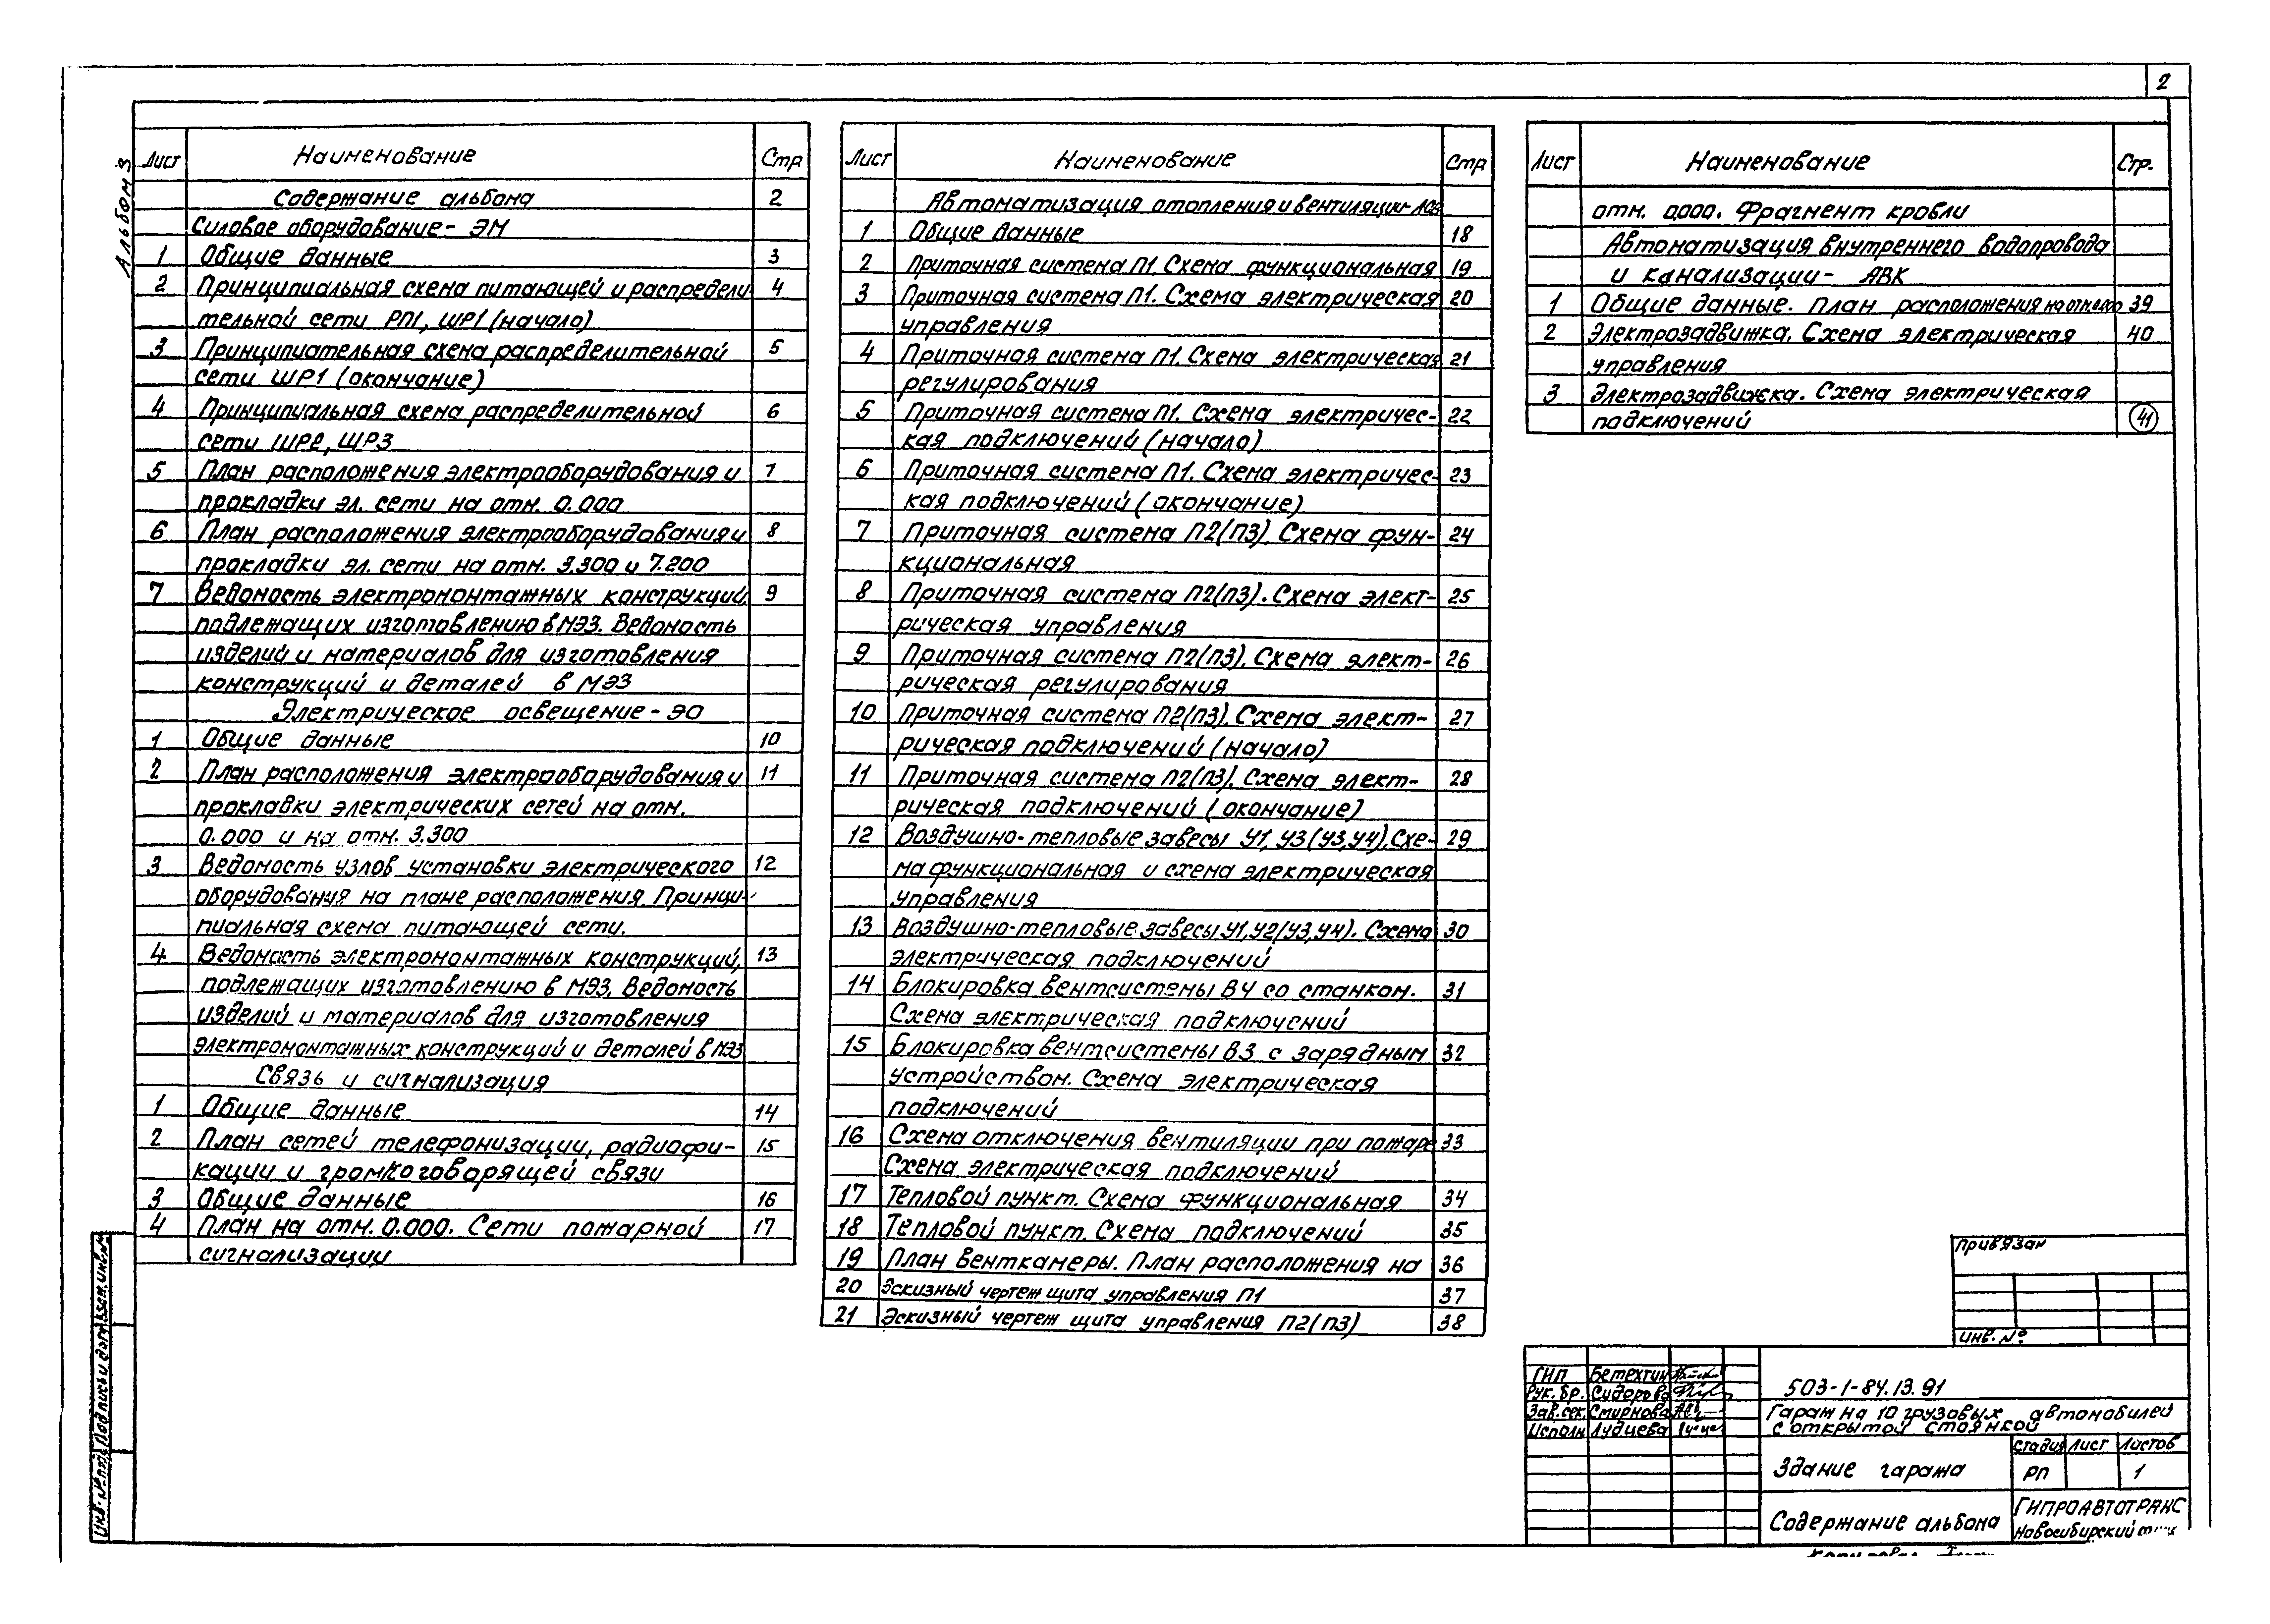 2
Альбом 3
Лист Наименование Стр
Содержание альбома 2
Силовое оборудование - ЭМ
1 Общие данные 3
2 Принципиальная схема питающей и распредели- 4
тельной сети РП1, ШР1 (начало)
3 Принципиательная схема распределительной 5
сети ШР1 (окончание)
4 Принципиальная схема распределительной 6
сети ШР2, ШР3
5 План расположения электрооборудования и 7
прокладки эл. сети на отм. 0.000
6 План расположения электрооборудования и 8
прокладки эл. сети на отм. 3.300 и 7.200
7 Ведомость электромонтажных конструкций, 9
подлежащих изготовлению в МЭЗ. Ведомость
изделий и материалов для изготовления
конструкций и деталей в МЭЗ
Электрическое освещение - ЭО
1 Общие данные 10
2 План расположения электрооборудования и 11
прокладки электрических сетей на отм.
0.000 и на отм. 3.300
3 Ведомость узлов установки электрического 12
оборудования на плане расположения. Принци-
пиальная схема питающей сети.
4 Ведомость электромонтажных конструкций, 13
подлежащих изготовлению в МЭЗ. Ведомость
изделий и материалов для изготовления
электромонтажных конструкций и деталей в МЭЗ
Связь и сигнализация
1 Общие данные 14
2 План сетей телефонизации, радиофи- 15
кации и громкоговорящей связи
3 Общие данные 16
4 План на отм. 0.000. Сети пожарной 17
сигнализации
Лист Наименование Стр
Автоматизация отопления и вентиляции-
1 Общие данные 18
2 Приточная система П1. Схема функциональная 19
3 Приточная система П1. Схема электрическая 20
управления
4 Приточная система П1. Схема электрическая 21
регулирования
5 Приточная система П1. Схема электричес- 22
кая подключений (начало)
6 Приточная система П1. Схема электричес- 23
кая подключений (окончание)
7 Приточная система П2(П3). Схема фун- 24
кциональная
8 Приточная система П2(П3). Схема элект- 25
рическая управления
9 Приточная система П2(П3). Схема элект- 26
рическая регулирования
10 Приточная система П2(П3). Схема элект- 27
рическая подключений (начало)
11 Приточная система П2(П3). Схема элект- 28
рическая подключений (окончание)
12 Воздушно-тепловые завесы У1, У3 (У3, У4). Схе- 29
ма функциональная и схема электрическая
управления
13 Воздушно-тепловые завесы У1, У2(У3, У4). Схема 30
электрическая подключений
14 Блокировка вентсистемы В4 со станком. 31
Схема электрическая подключений
15 Блокировка вентсистемы В3 с зарядным 32
устройством. Схема электрическая
подключений
16 Схема отключения вентиляции при пожаре 33
Схема электрическая подключений
17 Тепловой пункт. Схема функциональная 34
18 Тепловой пункт. Схема подключений 35
19 План венткамеры. План расположения на 36
20 Эскизный чертеж щита управления П1 37
21 Эскизный чертеж щита управления П2(П3) 38
Лист Наименование Стр.
отм. 0,000. Фрагмент кровли
Автоматизация внутреннего водопровода
и канализации - АВК
1 Общие данные. План расположения на отм. 0.000 39
2 Электрозадвижка. Схема электрическая 40
управления
3 Электрозадвижка. Схема электрическая
подключений 41
Привязан
Инв. №
ГИП Бетехтин
Рук. бр. Сидорова
Зав. сек. Смирнова
Исполн
503-1-84.13.91
Гараж на 10 грузовых автомобилей
с открытой стоянкой
Здание гаража
Стадия Лист Листов
РП 1
Содержание альбома
ГИПРОАВТОТРАНС
Новосибирский
Инв. № подл. Подпись и дата Взам. инв. №